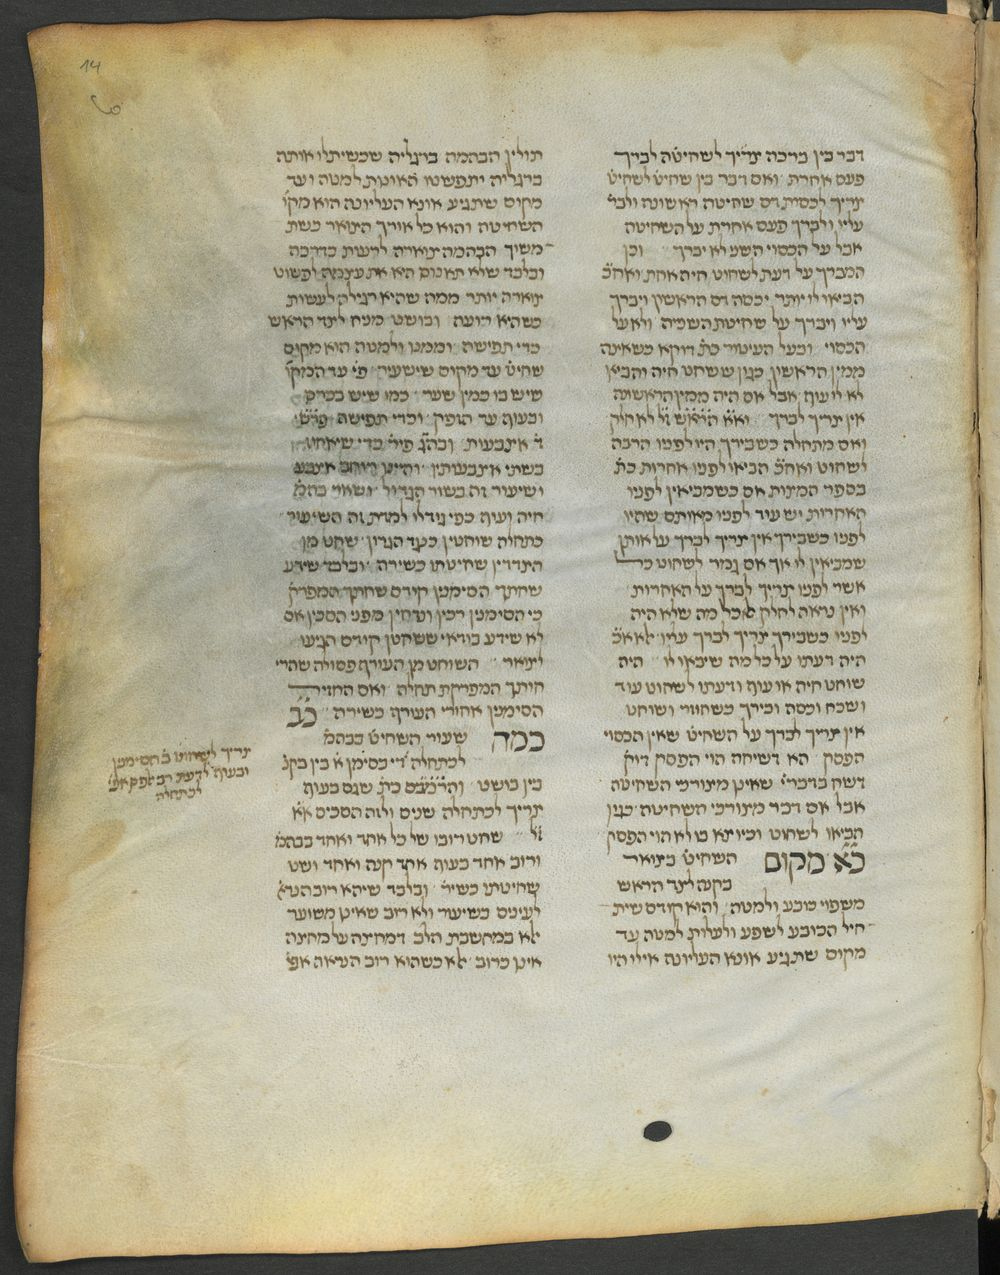 14
דבר בין ברכה צריך לשחיטה לברך
פעם אחרת ואם דבר בין שחיט׳ לשחיט׳
צריך לכסות דם שחיטה ראשונה ולבר׳
עליו ולברך פעם אחרת על השחיטה
אבל על הכסוי השני לא יברך וכן
המברך על דעת לשחוט חיה אחת ואח״כ
הביאו לו יותר יכסה דם הראשון ויברך
עליו ויברך על שחיטת השניה ולא על
הכסוי ובעל העיטור כת׳ דוקא כשאינה
ממין הראשון כגון ששחט חיה והביאו
לא לו עוף אבל אם היה ממין הראשונה
אין צריך לברך וא״א הרא״ש ז״ל לא חלק
ואם מתחלה כשבירך היו לפניו הרבה
לשחוט ואח״כ הביאו לפניו אחרות כת׳
בספר המצות אם כשמביאין לפניו
האחרות יש עוד לפניו מאותם שהיו
לפניו כשבירך אין צריך לברך על אותן
שמביאין לו אך אם גמר לשחוט כל
אשר לפניו צריך לברך על האחרות
ואין נראה לחלק אבל מה שלא היה
לפניו כשבירך צריך לברך עליו אלא א״כ
היה דעתו על כל מה שיבאו לו היה
שוחט חיה או עוף ודעתו לשחוט עוד
ושכח וכסה ובירך כשחוזר ושוחט
אין צריך לברך על השחיט׳ שאין הכסוי
הפסק הא דשיחה הוי הפסק דוק׳
דשח בדברי׳ שאינן מצורכי השחיטה
אבל אם דבר מצורכי השחיטה כגון
הביאו לשחוט וכיוצא בו לא הוי הפסק
כא מקום השחיט׳ בצואר
בקנה לצד הראש
משפוי כובע ולמטה והוא קודם שית
חיל הכובע לשפע ולעלות למטה עד
מקום שתגיע אונא העליונה אילו היו
תולין הבהמה ברגליה שכשיתלו אותה
ברגליה יתפשטו האונות למטה ועד
מקום שתגיע אונא העליונה הוא מקו׳
השחיטה והוא כל אורך הצואר כשת
משוך הבהמה צוארה לרעות כדרכה
ובלבד שלא תאנוס היא את עצמה לפשוט
צוארה יותר ממה שהיא רגילה לעשות
כשהיא רועה ובושט מניח לצד הראש
כדי תפישה וממנו ולמטה הוא מקום
שחיט׳ עד מקום שישעיר פי׳ עד המקו׳
שיש בו כמין שער כמו שיש בכרס
ובעוף עד הזפק וכדי תפישה פרש״י
ד׳ אצבעות ובה״ג פיר׳ כדי שיאחזנו
בשתי אצבעותיו והיינו רוחב אצבע
ושיעור זה בשור הגדול ושאר בהמ׳
חיה ועוף כפי גודלו למדת זה השיעור
כתחלה שוחטין כנגד הגרון שחט מן
הצדדין שחיטתו כשירה ובלבד שידע
שחתך הסימנין קודם שחתך המפרקת
כי הסימנין רכין ונדחין מפני הסכין אם
לא שידע בודאי ששחטן קודם הגיעו
לצואר השוחט מן העורף פסולה שהרי
חותך המפרקת תחלה ואם החזיר
הסימנין אחורי העורף כשירה כב
כמה שעור השחיט׳ בבהמ׳
לכתחלה ב׳ סימנין א׳ בין בקנ׳
בין בושט והרמב״ם כת׳ שגם בעוף
צריך לכתחלה שנים ולזה הסכים א״א
ז״ל שחט רובו של כל אחד ואחד בבהמ׳
ורוב אחד בעוף אחד קנה ואחד ושט
שחיטתו כשיר׳ ובלבד שיהא רוב הנרא׳
לעינים בשיעור ולא רוב שאינו משוער
אלא במחשבת הלב דמחצה על מחצה
אינו כרוב אלא כשהוא רוב הנראה אפי׳
צריך לשחוט ב׳ הסימנין
ובעוף לדעת
לכתחלה